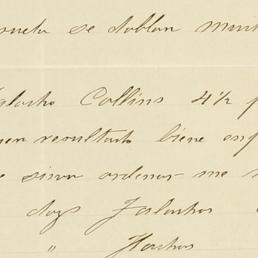 se doblan
Collins 4½ p
resultado biene
se sirva ordenar me
dozs Falachos
" Hachas